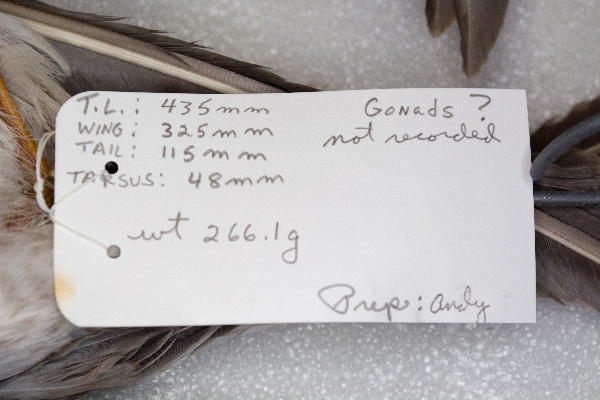 T.L.: 435mm
WING: 325mm
TAIL: 115mm
TARSUS: 48mm
Gonads ?
not recorded
wt 266.1g
Prep: Andy